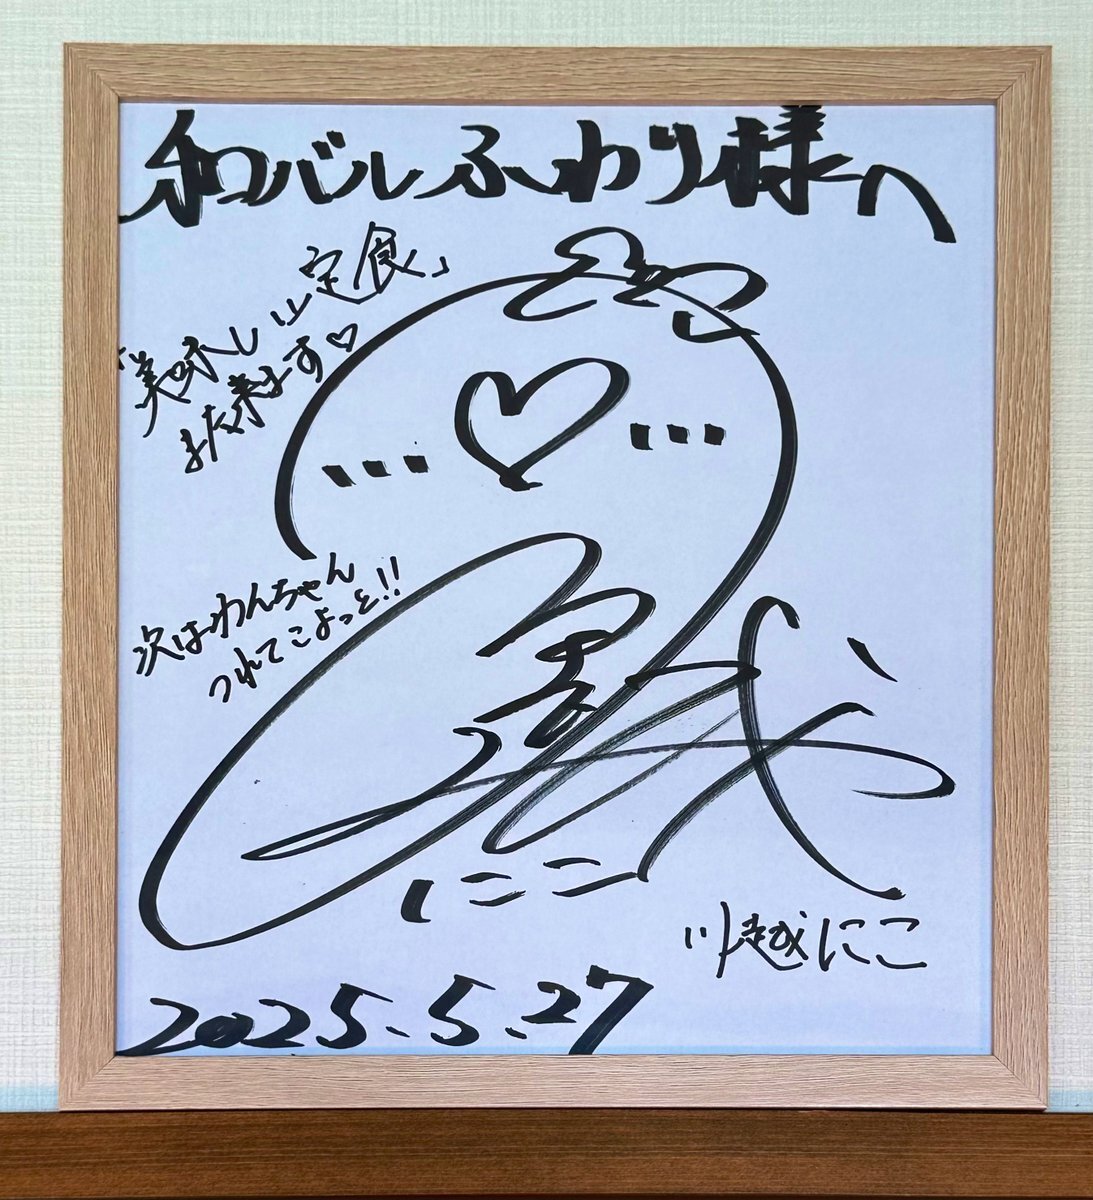 和バルふわり様へ
「美味しい定食」
また来ます♡
次はわんちゃん
つれてこよっと!!
越
にこ
川越にこ
2025.5.27